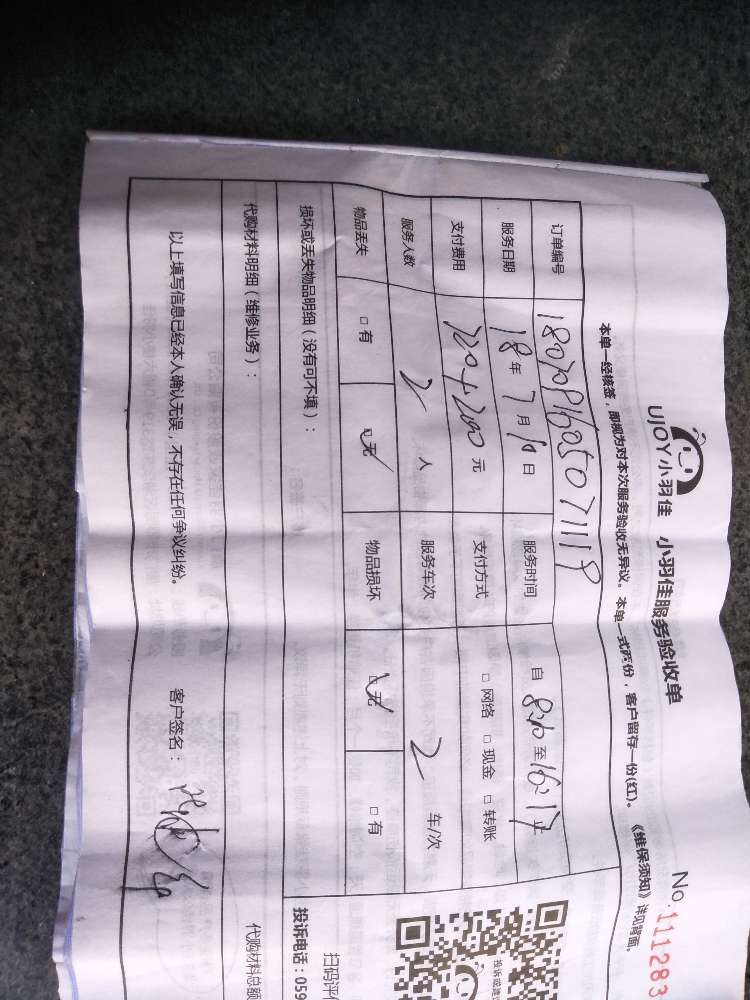 UJOY小羽佳 小羽佳服务验收单
No.111283
本单一经核签，即视为对本次服务验收无异议。本单一式两份，客户留存一份(红)。《维保须知》详见背面。
订单编号 1807091605071119
服务日期 18年7月10日 服务时间 自 8:20 至 16:17
支付费用 720+200元 支付方式 □网络 □现金 □转账
服务人数 2人 服务车次 2车/次
物品丢失 □有 □无 物品损坏 □无 □有
损坏或丢失物品明细（没有可不填）：
代购材料明细（维修业务）：
代购材料总额
以上填写信息已经本人确认无误，不存在任何争议纠纷。 客户签名：
投诉或建议
扫码评
投诉电话：059